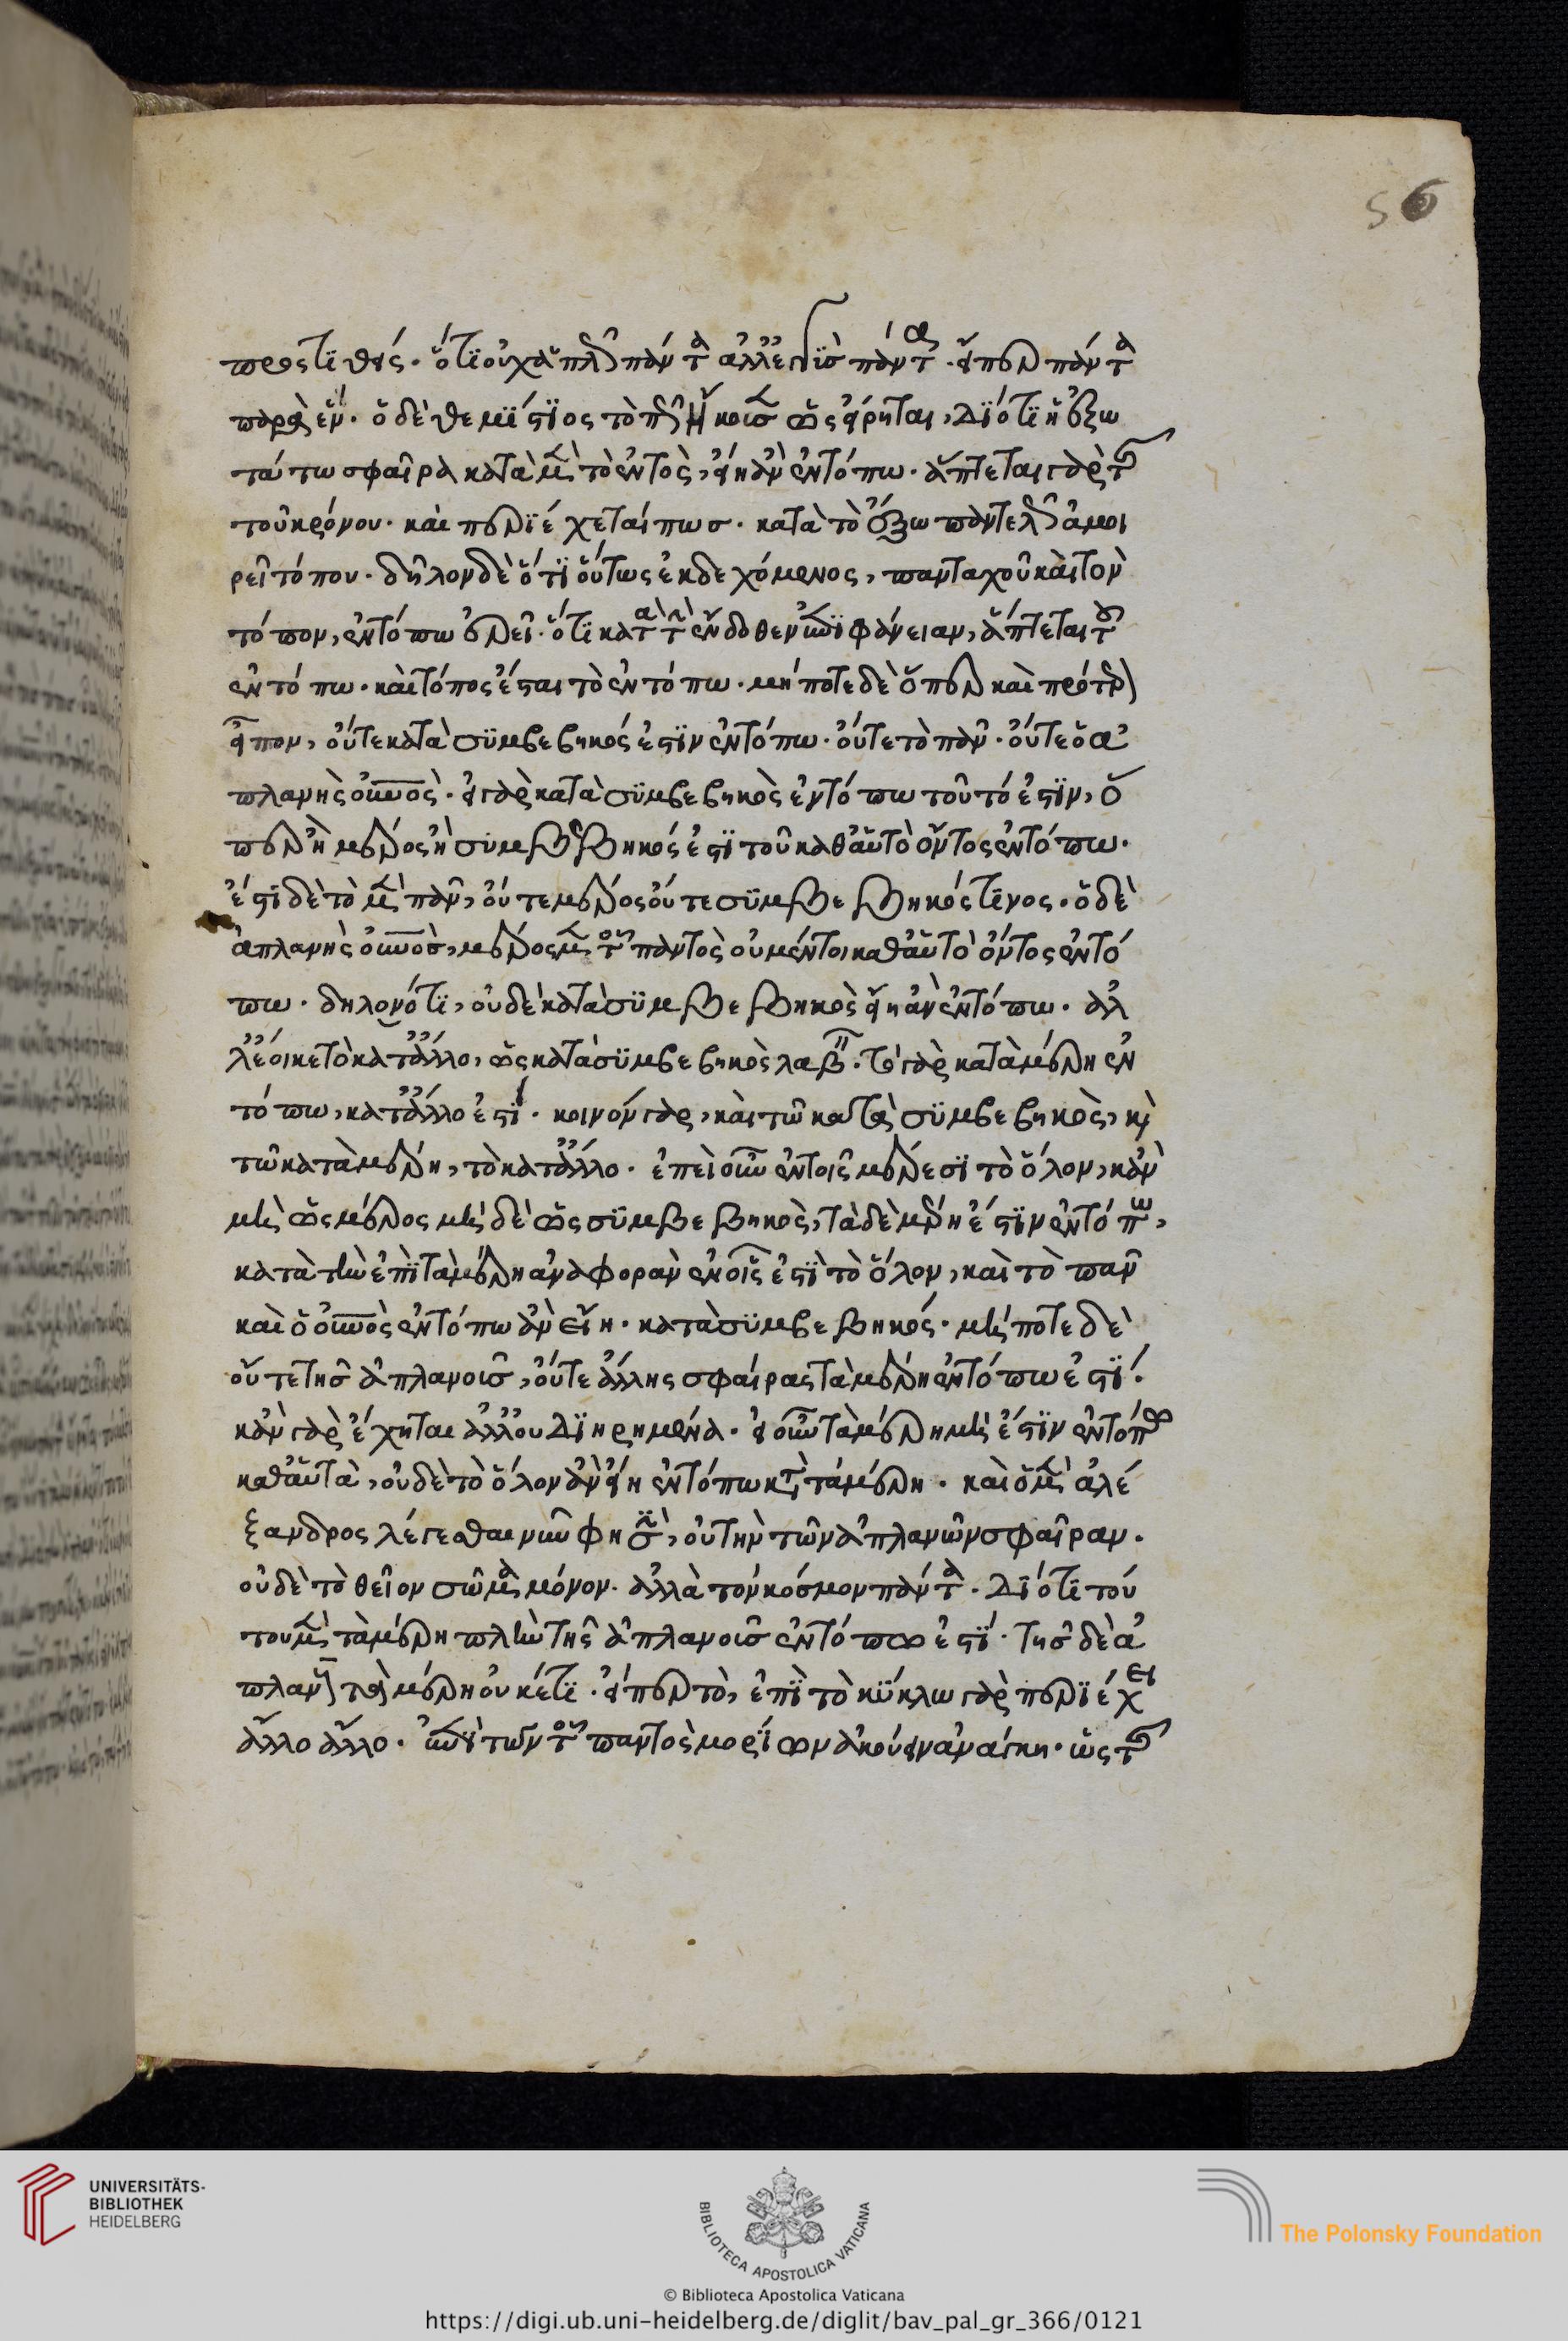 56
προστιθείς. ὅτι οὐχ ἁπλῶς πάντα ἀλλ' ἐπ' ἴσα πάντα. εἴπερ πάντα
παρὰ ἕν. ὁ δὲ θεμίστιος τὸ πῶς κεῖσθαι ὡς εἴρηται, διότι ἡ ἔξω
τάτω σφαῖρα κατὰ μὲν τὸ ἐντὸς, εἴη ἂν ἐν τόπω. ἅπτεται γὰρ τῆς
τοῦ κρόνου. καὶ περιέχεται πως. κατὰ τὸ ἔξω παντελῶς ἀμοι
ρεῖ τόπου. δῆλον δὲ ὅτι οὕτως ἐκδεχόμενος, πανταχοῦ καὶ τὸν
τόπον, ἐν τόπω ἐρεῖ. ὅτι κατὰ τὴν ἔνδοθεν ἐπιφάνειαν, ἅπτεται τοῦ
ἐν τόπω. καὶ τόπος ἔσται τὸ ἐν τόπω. μήποτε δὲ ὅπερ καὶ πρότερον
εἶπον, οὔτε κατὰ συμβεβηκός ἐστιν ἐν τόπω. οὔτε τὸ πᾶν. οὔτε ὁ ἀ
πλανὴς οὐνὸς. εἰ γὰρ κατὰ συμβεβηκὸς ἐν τόπω τοῦτό ἐστιν, ὃ
περ ἢ μέρος ἢ συμβεβηκός ἐστι τοῦ καθ' αὑτὸ ὄντος ἐν τόπω.
ἔστι δὲ τὸ μὲν πᾶν, οὔτε μέρος οὔτε συμβεβηκός τινος. ὁ δὲ
ἀπλανὴς οὐνὸς, μέρος μὲν τοῦ παντὸς οὐ μέντοι καθ' αὑτὸ ὄντος ἐν τό
πω. δηλονότι, οὐδὲ κατὰ συμβεβηκὸς εἴη ἂν ἐν τόπω. ἀλ
λ' ἔοικε τὸ κατ' ἄλλο, ὡς κατὰ συμβεβηκὸς λαβεῖν. τὸ γὰρ κατὰ μέρη ἐν
τόπω, κατ' ἄλλο ἐστι. κοινὸν γὰρ, καὶ τῶ κατὰ συμβεβηκὸς, κὶ
τῶ κατὰ μέρη, τὸ κατ' ἄλλο. ἐπεὶ οὖν ἐν τοῖς μέρεσι τὸ ὅλον, κἂν
μὴ ὡς μέρος μὴ δὲ ὡς συμβεβηκὸς, τὰ δὲ μέρη ἐστιν ἐν τόπω,
κατὰ τὴν ἐπὶ τὰ μέρη ἀναφορὰν ἐν οἷς ἐστι τὸ ὅλον, καὶ τὸ πᾶν
καὶ ὁ οὐνὸς ἐν τόπω ἂν εἴη. κατὰ συμβεβηκός. μήποτε δὲ
οὔτε τῆς ἀπλανοῦς, οὔτε ἄλλης σφαίρας τὰ μέρη ἐν τόπω ἐστί.
κἂν γὰρ ἔχηται ἀλλ' οὐ διηρημένα. εἰ οὖν τὰ μέρη μή ἐστιν ἐν τόπω
καθ' αὑτὰ, οὐδὲ τὸ ὅλον ἂν εἴη ἐν τόπω κατὰ τὰ μέρη. καὶ ὁ μὲν ἀλέ
ξανδρος λέγεσθαι νῦν φησὶν, οὐ τὴν τῶν ἀπλανῶν σφαῖραν.
οὐδὲ τὸ θεῖον σῶμα μόνον. ἀλλὰ τὸν κόσμον πάντα. διότι τού
του μὲν τὰ μέρη πλὴν τῆς ἀπλανοῦς ἐν τόπω ἐστί. τῆς δὲ ἀ
πλανοῦς τὰ μέρη οὐκέτι. εἴπερ τὸ, ἐπὶ τὸ κύκλω γὰρ περιέχει
ἄλλο ἄλλο. ἐπὶ τῶν τοῦ παντὸς μορίων ἀκούειν ἀνάγκη. ὡς τῆς
UNIVERSITÄTS-
BIBLIOTHEK
HEIDELBERG
BIBLIOTECA APOSTOLICA VATICANA
The Polonsky Foundation
© Biblioteca Apostolica Vaticana
https://digi.ub.uni-heidelberg.de/diglit/bav_pal_gr_366/0121